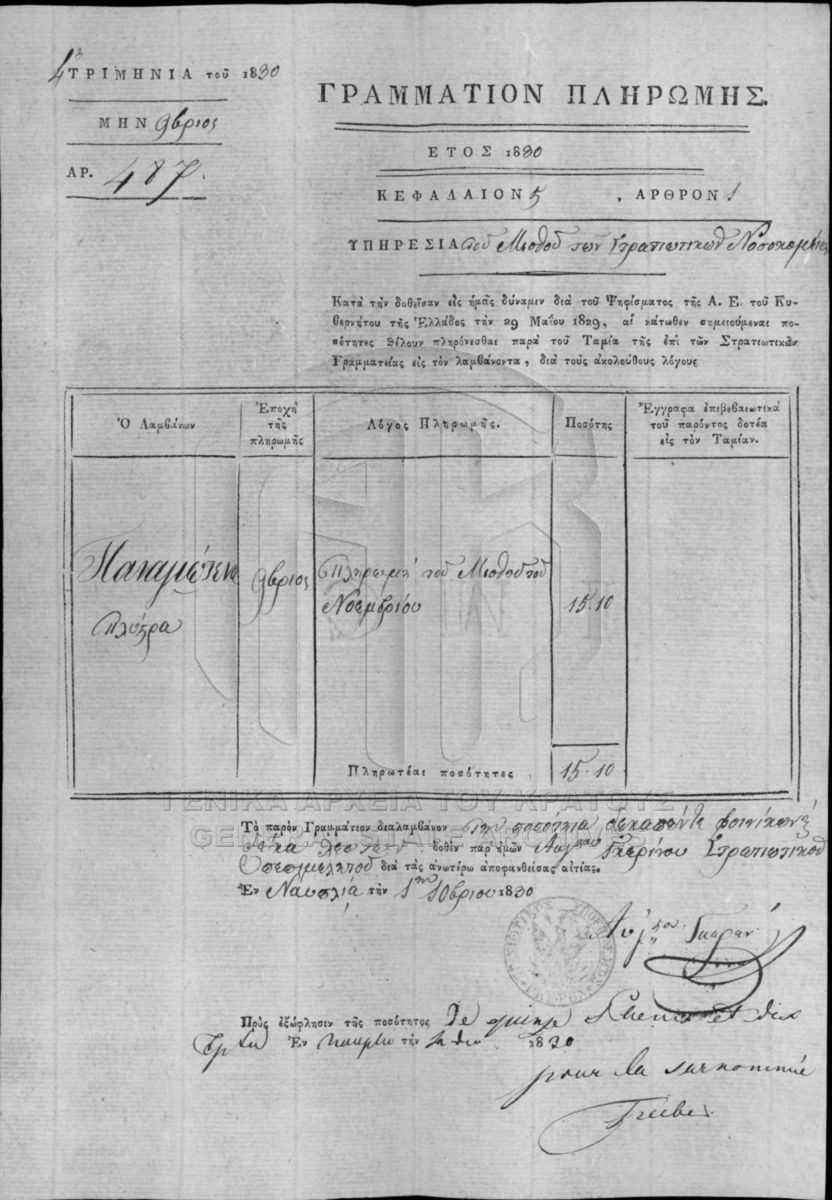 4 ΤΡΙΜΗΝΙΑ τοῦ 1830
ΜΗΝ 9βριος
ΑΡ. 487.
ΓΡΑΜΜΑΤΙΟΝ ΠΛΗΡΩΜΗΣ.
ΕΤΟΣ 1830
ΚΕΦΑΛΑΙΟΝ 5 , ΑΡΘΡΟΝ 1
ΥΠΗΡΕΣΙΑ τοῦ Μισθοῦ τῶν Στρατιωτικῶν
Κατὰ τὴν δοθεῖσαν εἰς ἡμᾶς δύναμιν διὰ τοῦ Ψηφίσματος τῆς Α. Ε. τοῦ Κυ-
βερνήτου τῆς Ἑλλάδος τὴν 29 Μαΐου 1829, αἱ κάτωθεν σημειούμεναι πο-
σότητες θέλουν πληρόνεσθαι παρὰ τοῦ Ταμία τῆς ἐπὶ τῶν Στρατιωτικῶν
Γραμματείας εἰς τὸν λαμβάνοντα, διὰ τοὺς ἀκολούθους λόγους
Ὁ Λαμβάνων
Ἐποχὴ
τῆς
πληρωμῆς
Λόγος Πληρωμῆς.
Ποσότης
Ἔγγραφα ἐπιβεβαιωτικὰ
τοῦ παρόντος δοτέα
εἰς τὸν Ταμίαν.
πλύτρα
9βριος
Πληρωμὴ τοῦ Μισθοῦ τοῦ
Νοεμβρίου
15.10
Πληρωτέαι ποσότητες
15.10
ΓΕΝΙΚΑ ΑΡΧΕΙΑ ΤΟΥ ΚΡΑΤΟΥΣ
Τὸ παρὸν Γραμμάτιον διαλαμβάνον τὴν ποσότητα δεκαπέντε φοινίκων
δέκα λεπτῶν δοθὲν παρ' ἡμῶν Στρατιωτικοῦ
διὰ τὰς ἀνωτέρω ἀποφανθείσας αἰτίας.
Ἐν Ναυπλίᾳ τὴν 1 10βρίου 1830
Πρὸς ἐξώφλησιν τῆς ποσότητος De quinze et dix
Ἐν τὴν 1830
pour la surnommée